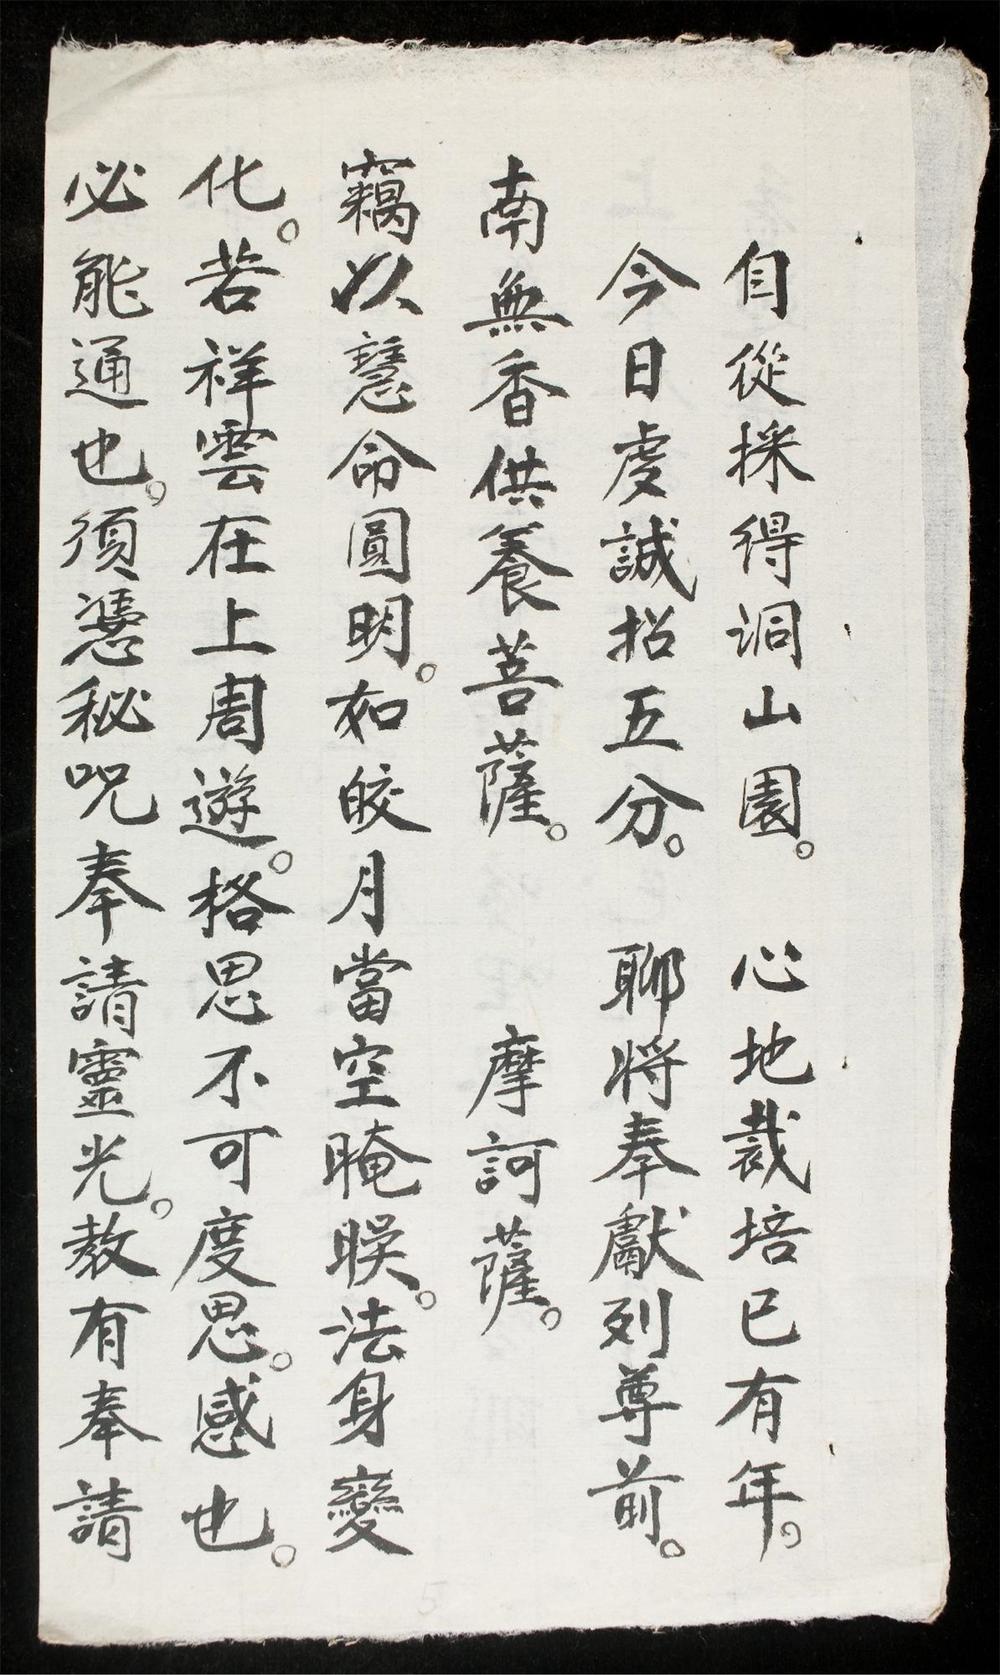 自從採得洞山園。心地裁培已有年。
今日虔誠招五分。聊將奉獻列尊前。
南無香供養菩薩。摩訶薩。
竊以慧命圓明。如皎月當空晻睽。法身變
化。若祥雲在上周遊。格思不可度思。感也。
必能通也。須憑秘呪奉請靈光。教有奉請